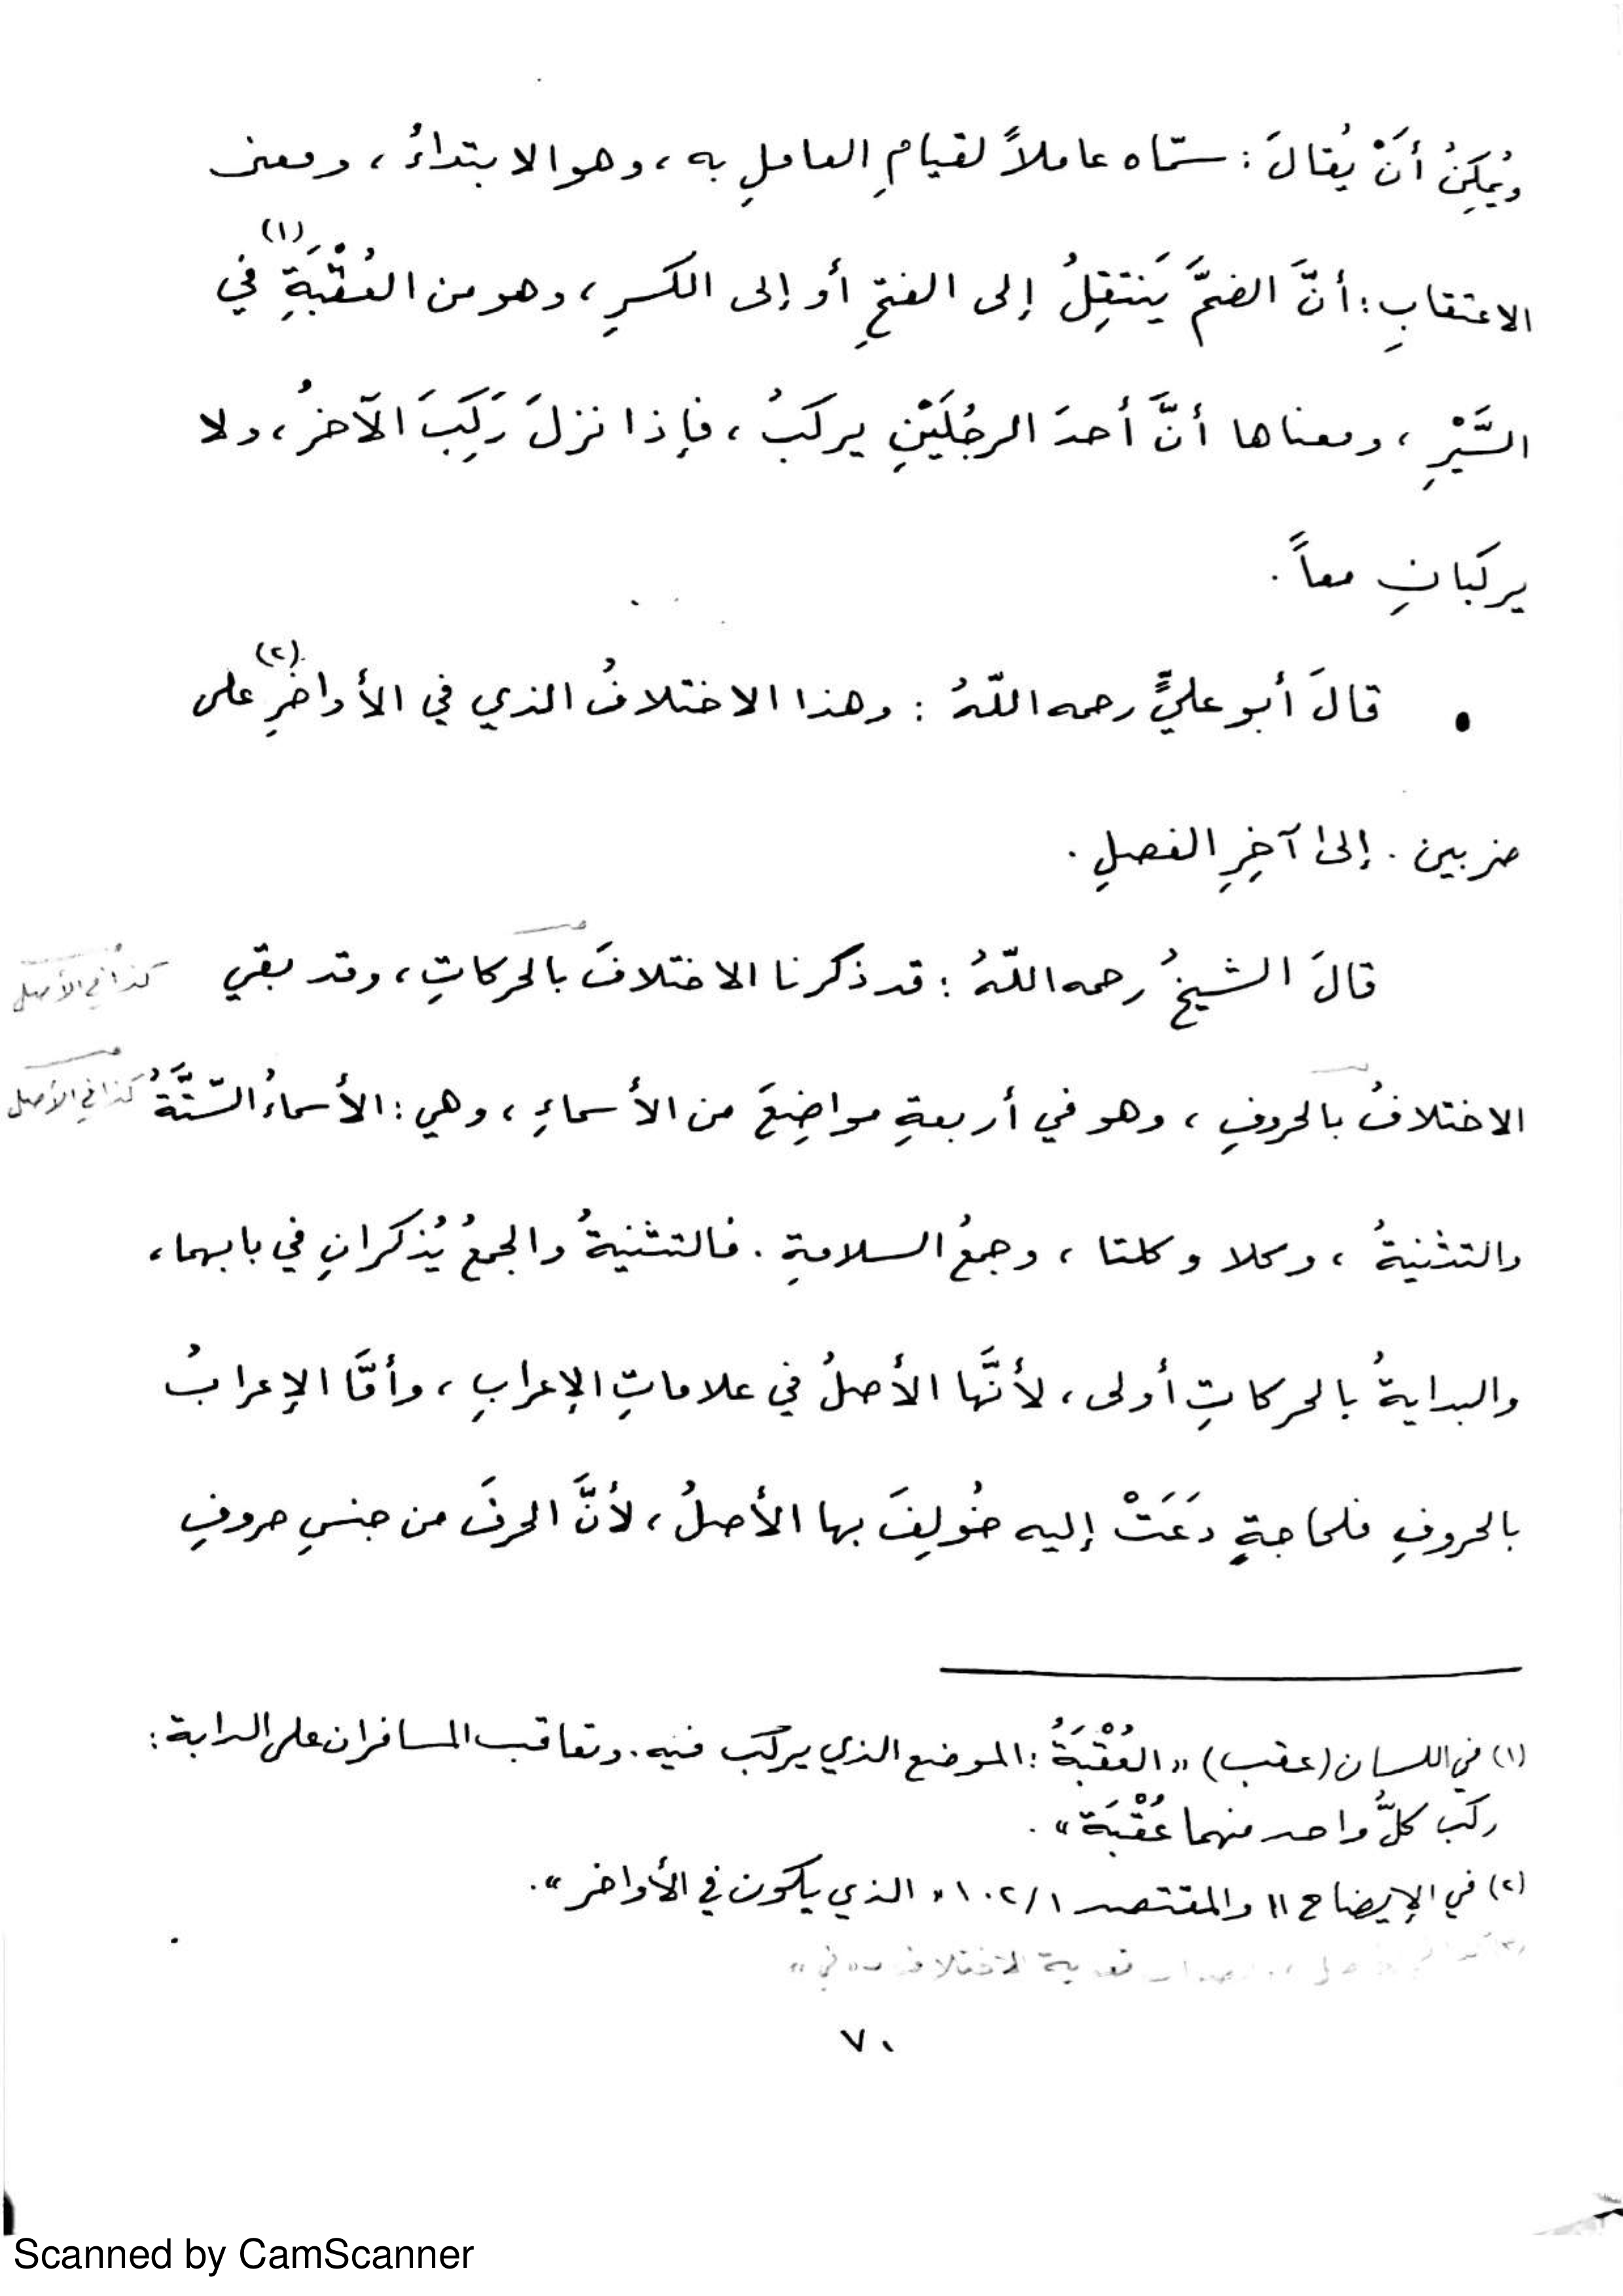 ويُمكِنُ أنْ يُقالَ : سمّاه عاملاً لقيامِ العاملِ به ، وهو الابتداءُ ، ومعنى
الاعتقابِ : أنَّ الضمَّ يَنتقِلُ إلى الفتحِ أو إلى الكسرِ ، وهو من العُقْبَةِ (١) في
السَّيْرِ ، ومعناها أنَّ أحدَ الرجُلَيْنِ يركبُ ، فإذا نزلَ رَكِبَ الآخرُ ، ولا
يركبانِ معاً .
• قالَ أبو عليٍّ رحمه اللّهُ : وهذا الاختلافُ الذي في الأواخرِ (٢) على
ضربين . إلى آخِرِ الفصلِ .
قالَ الشيخُ رحمه اللّهُ : قد ذكرنا الاختلافَ بالحركاتِ ، وقد بقي كذا في الأصل
الاختلافُ بالحروفِ ، وهو في أربعةِ مواضِعَ من الأسماءِ ، وهي : الأسماءُ السّتَّةُ كذا في الأصل
والتثنيةُ ، وكلا وكلتا ، وجمعُ السلامةِ . فالتثنيةُ والجمعُ يُذكرانِ في بابهما ،
والبدايةُ بالحركاتِ أولى ، لأنَّها الأصلُ في علاماتِ الإعرابِ ، وأمَّا الإعرابُ
بالحروفِ فلحاجةٍ دَعَتْ إليه خُولِفَ بها الأصلُ ، لأنَّ الحرفَ من جنسِ حروفِ
(١) في اللسان (عقب) « العُقْبَةُ : الموضع الذي يركب فيه . وتعاقب المسافران على الدابة :
ركب كلُّ واحد منهما عُقْبَة » .
(٢) في الإيضاح ١١ والمقتصد ١٠٢/١ « الذي يكون في الأواخر » .
تعدية الاختلاف بـ « في »
٧٠
Scanned by CamScanner